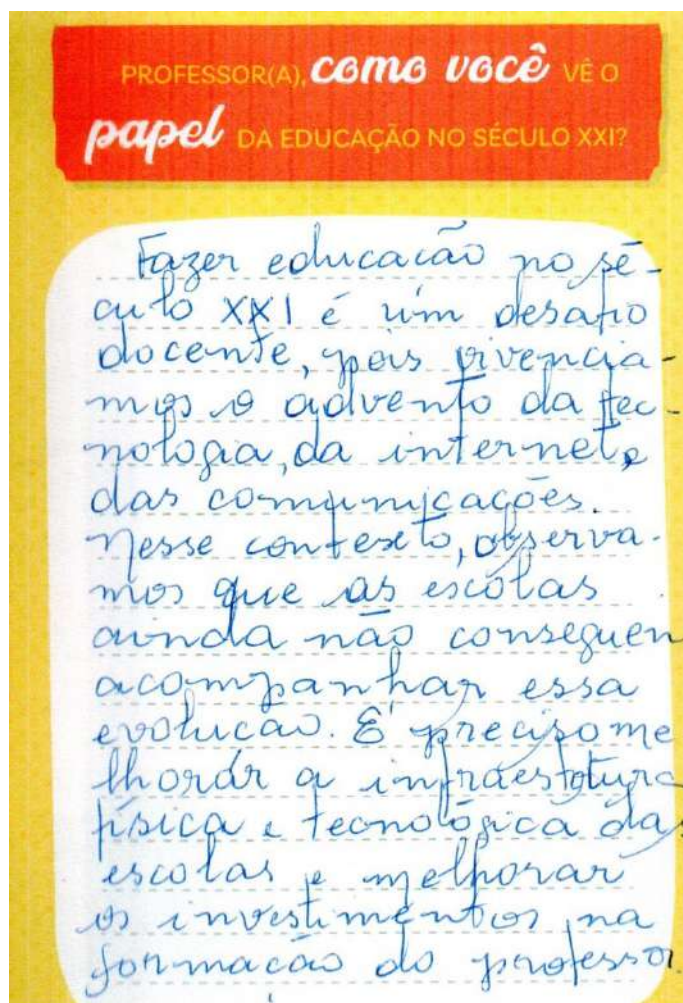 PROFESSOR(A), como você VÊ O
papel DA EDUCAÇÃO NO SÉCULO XXI?
Fazer educação no sé-
culo XXI é um desafio
docente, pois vivencia-
mos o advento da tec-
nologia, da internet e
das comunicações.
Nesse contexto, observa-
mos que as escolas
ainda não conseguem
acompanhar essa
evolução. É preciso me
lhorar a infraestrutura
física e tecnológica das
escolas e melhorar
os investimentos na
formação do professor.